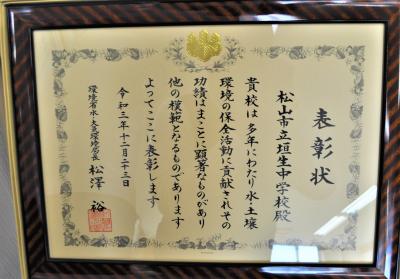 表彰状
松山市立垣生中学校殿
貴校は多年にわたり水・土壌
環境の保全活動に貢献されその
功績はまことに顕著なものがあり
他の模範となるものであります
よってここに表彰します
令和三年十二月二十三日
環境省水・大気環境局長 松澤 裕